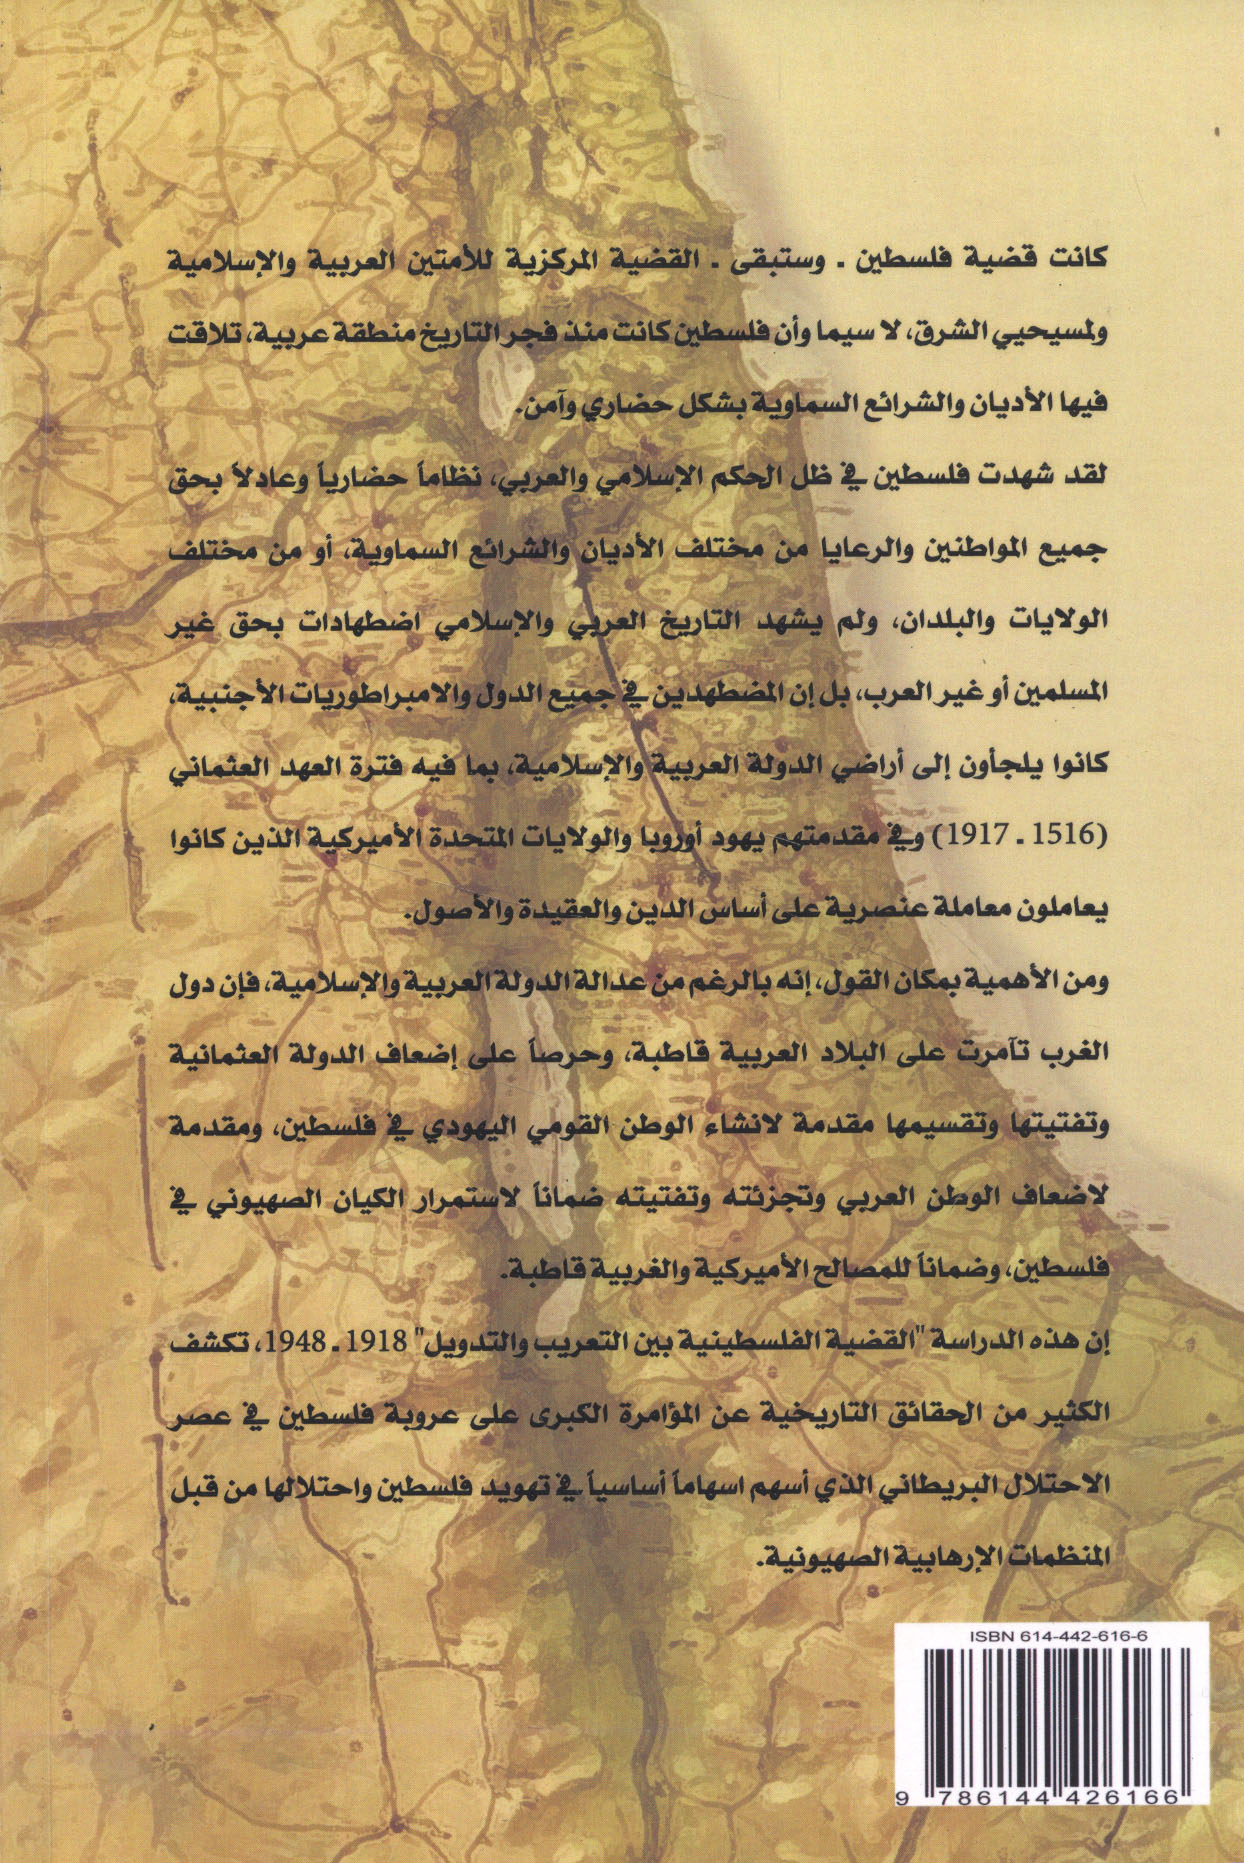 كانت قضية فلسطين . وستبقى . القضية المركزية للأمتين العربية والإسلامية
ولمسيحيي الشرق، لا سيما وأن فلسطين كانت منذ فجر التاريخ منطقة عربية، تلاقت
فيها الأديان والشرائع السماوية بشكل حضاري وآمن.
لقد شهدت فلسطين في ظل الحكم الإسلامي والعربي، نظاماً حضارياً وعادلاً بحق
جميع المواطنين والرعايا من مختلف الأديان والشرائع السماوية، أو من مختلف
الولايات والبلدان، ولم يشهد التاريخ العربي والإسلامي اضطهادات بحق غير
المسلمين أو غير العرب، بل إن المضطهدين في جميع الدول والامبراطوريات الأجنبية،
كانوا يلجأون إلى أراضي الدولة العربية والإسلامية، بما فيه فترة العهد العثماني
(1516 . 1917) وفي مقدمتهم يهود أوروبا والولايات المتحدة الأميركية الذين كانوا
يعاملون معاملة عنصرية على أساس الدين والعقيدة والأصول.
ومن الأهمية بمكان القول، إنه بالرغم من عدالة الدولة العربية والإسلامية، فإن دول
الغرب تآمرت على البلاد العربية قاطبة، وحرصاً على إضعاف الدولة العثمانية
وتفتيتها وتقسيمها مقدمة لانشاء الوطن القومي اليهودي في فلسطين، ومقدمة
لاضعاف الوطن العربي وتجزئته وتفتيته ضماناً لاستمرار الكيان الصهيوني في
فلسطين، وضماناً للمصالح الأميركية والغربية قاطبة.
إن هذه الدراسة "القضية الفلسطينية بين التعريب والتدويل" 1918 . 1948، تكشف
الكثير من الحقائق التاريخية عن المؤامرة الكبرى على عروبة فلسطين في عصر
الاحتلال البريطاني الذي أسهم اسهاماً أساسياً في تهويد فلسطين واحتلالها من قبل
المنظمات الإرهابية الصهيونية.
ISBN 614-442-616-6
9 786144 426166